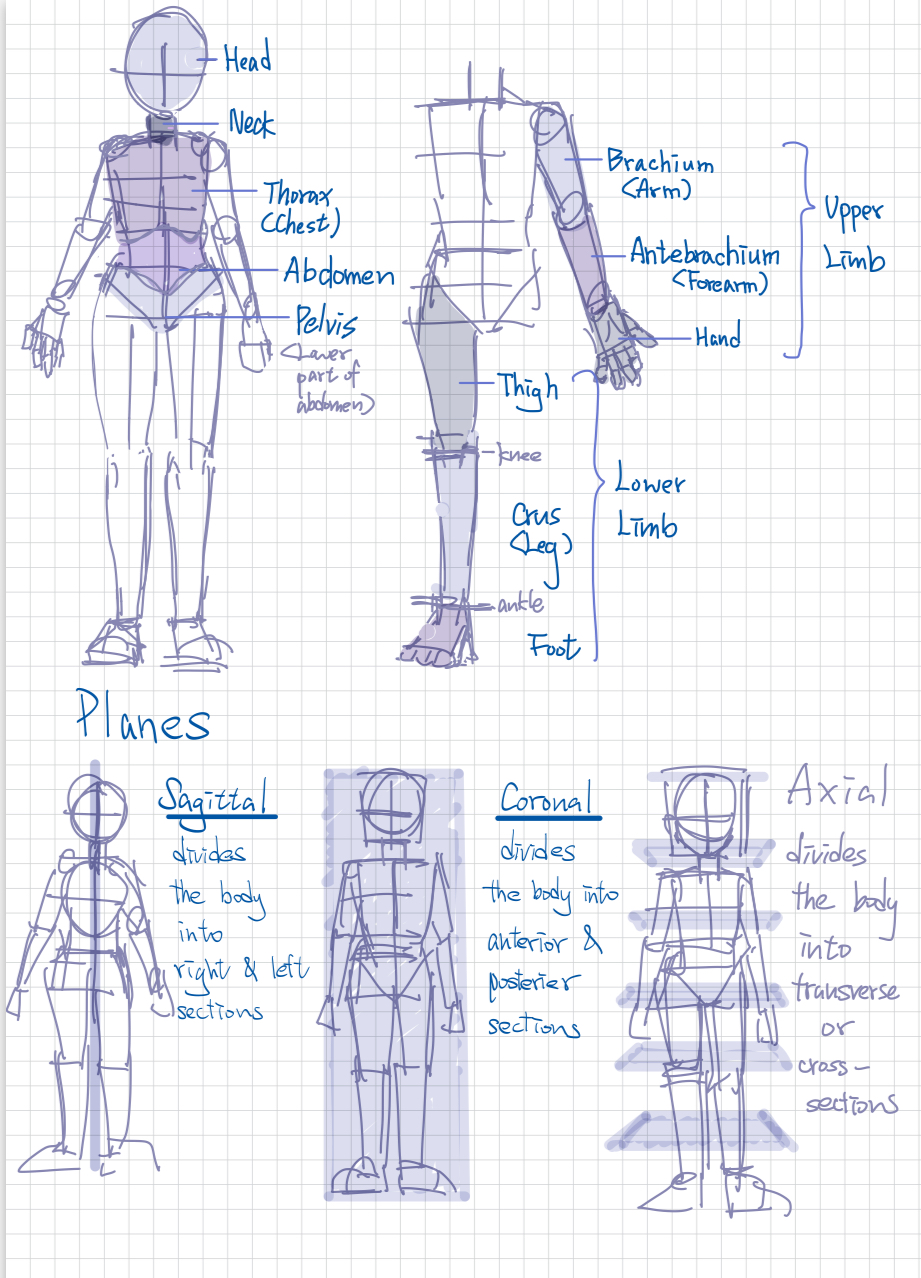 Head
Neck
Thorax
(Chest)
Abdomen
Pelvis
(Lower
part of
abdomen)
Brachium
(Arm)
Antebrachium
(Forearm)
Hand
Upper
Limb
Thigh
knee
Crus
(Leg)
ankle
Foot
Lower
Limb
Planes
Sagittal
divides
the body
into
right & left
sections
Coronal
divides
the body into
anterior &
posterier
sections
Axial
divides
the body
into
transverse
or
cross-
sections